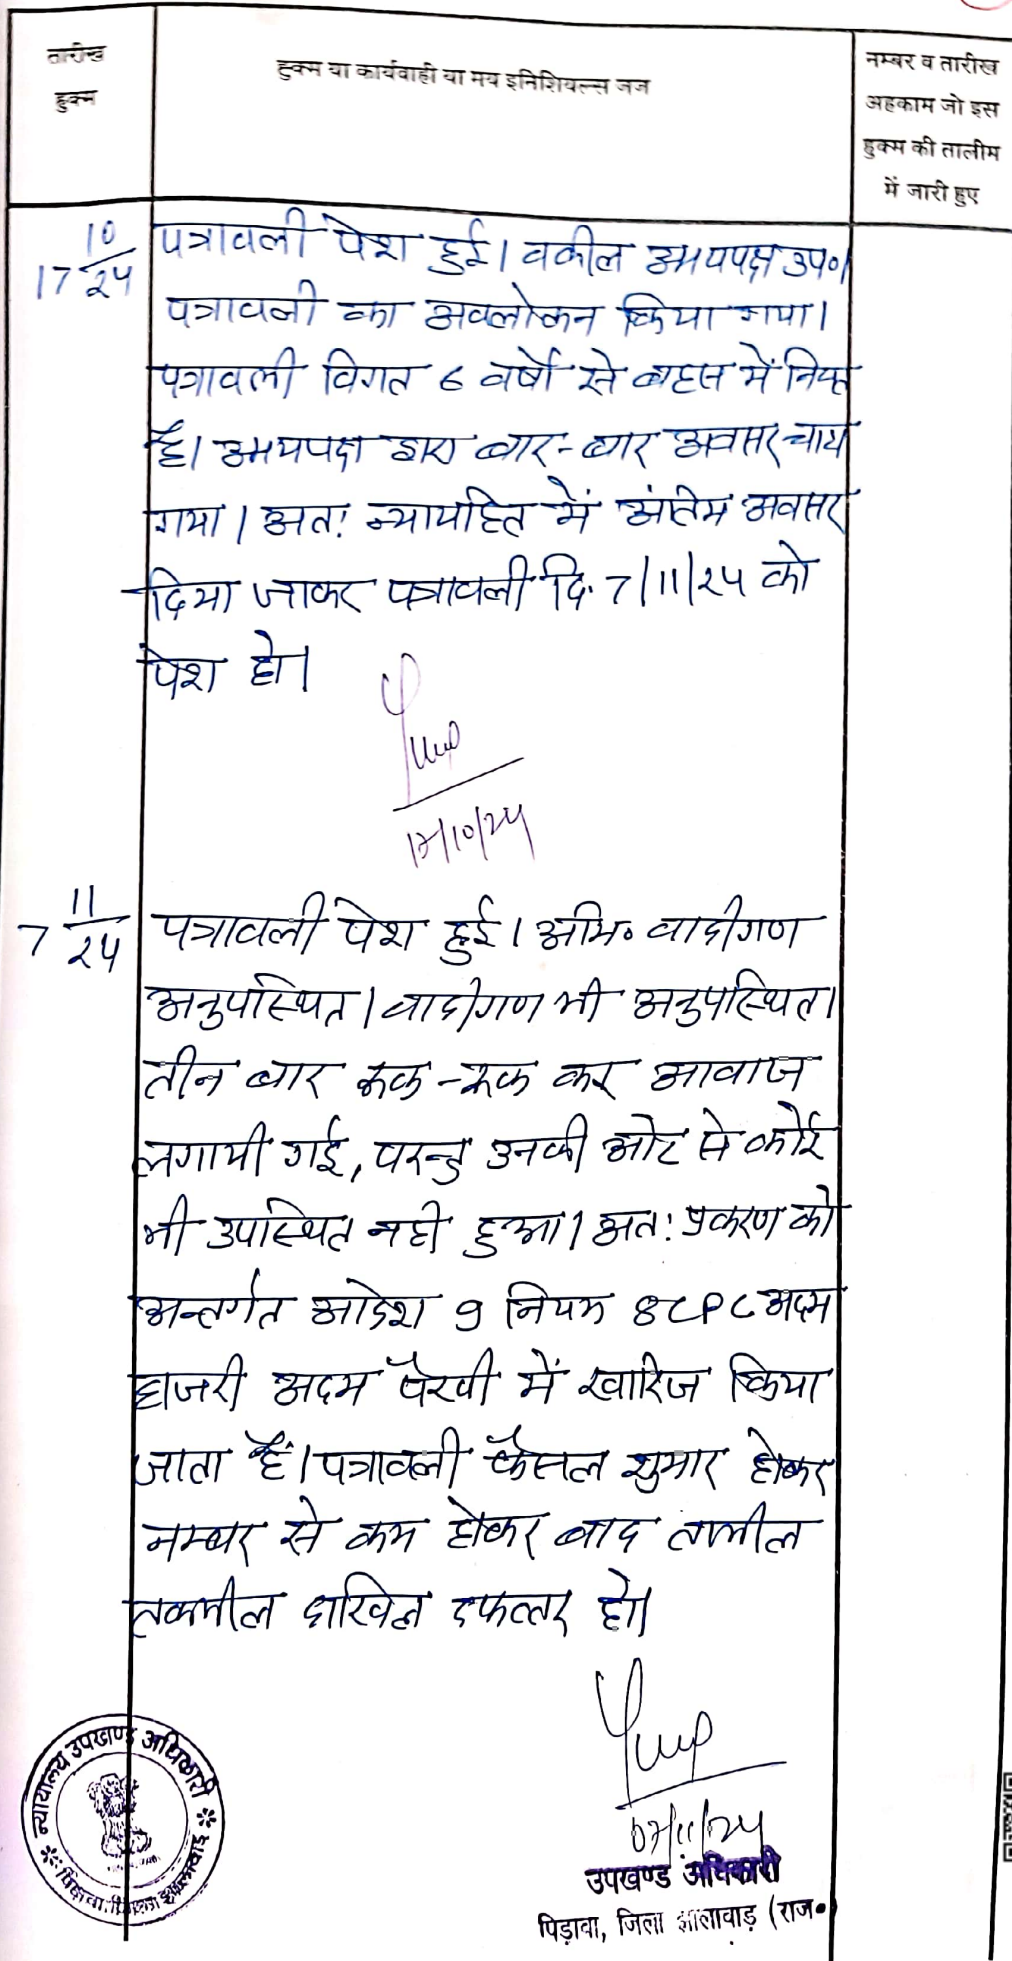 तारीख हुक्म
हुक्म या कार्यवाही या मय इनिशियल्स जज
नम्बर व तारीख
अहकाम जो इस
हुक्म की तालीम
में जारी हुए
17 10/24
पत्रावली पेश हुई। वकील उभयपक्ष उप०।
पत्रावली का अवलोकन किया गया।
पत्रावली विगत 6 वर्षों से बहस में नियत
है। उभयपक्ष द्वारा बार-बार अवसर चाहा
गया। अत: न्यायहित में अंतिम अवसर
दिया जाकर पत्रावली दि. 7/11/24 को
पेश हो।
17/10/24
7 11/24
पत्रावली पेश हुई। अभि० वादीगण
अनुपस्थित। वादीगण भी अनुपस्थित।
तीन बार रूक-रूक कर आवाज
लगायी गई, परन्तु उनकी ओर से कोई
भी उपस्थित नही हुआ। अत: प्रकरण को
अन्तर्गत आदेश 9 नियम 8 CPC अदम
हाजरी अदम पैरवी में खारिज किया
जाता है। पत्रावली फैसल शुमार होकर
नम्बर से कम होकर बाद तामील
तकमील दाखिल दफ्तर हो।
07/11/24
उपखण्ड अधिकारी
पिड़ावा, जिला झालावाड़ (राज०)
न्यायालय उपखण्ड अधिकारी
पिड़ावा, जिला झालावाड़